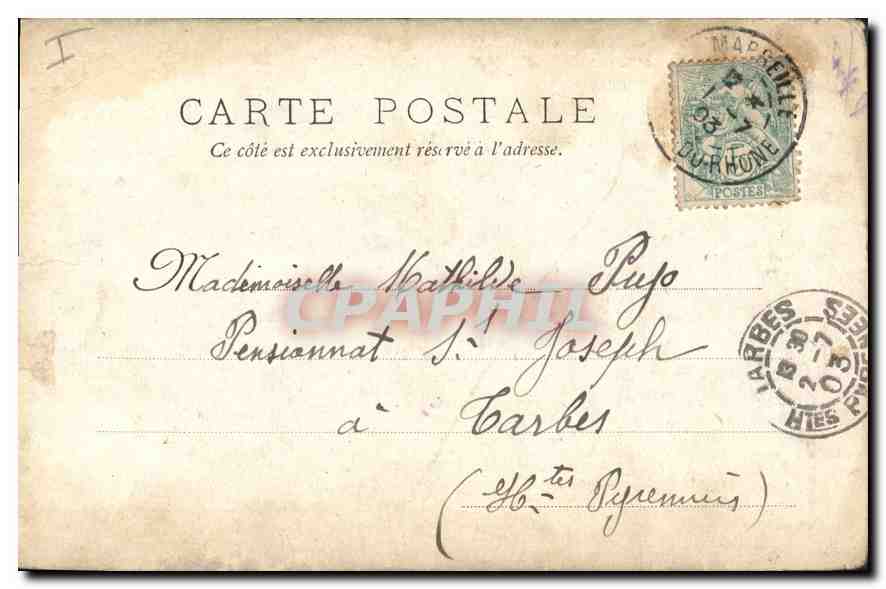 I
CARTE POSTALE
Ce côté est exclusivement réservé à l'adresse.
MARSEILLE
1 -7
03
DU-RHONE
POSTES
Mademoiselle Mathilde Pujo
CPAPHIL
Pensionnat St Joseph
à Tarbes
(Htes Pyrennées)
TARBES
13 30
2 -7
03
HTES PYRENEES